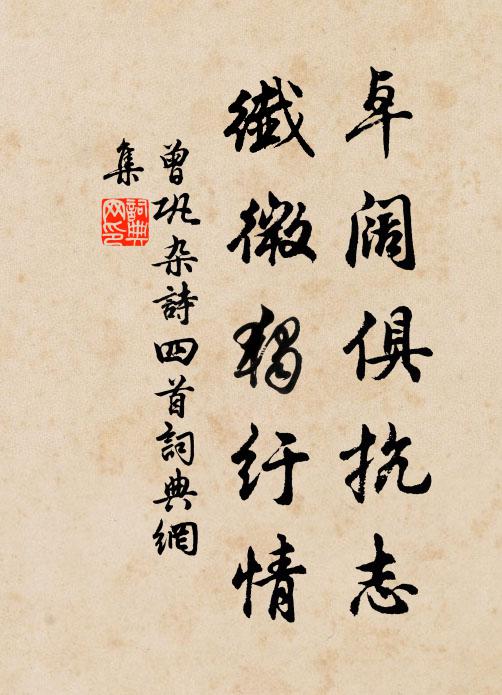 卓阔俱抗志
纖微獨紆情
曾巩杂詩四首詞典網
集
詞典
网印